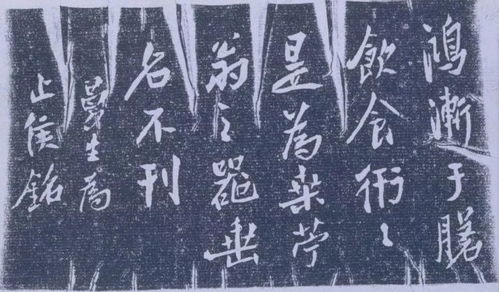 鴻漸于磐
飲食衎〻
是為桑苧
翁之器垂
名不刊
曼生為
止侯銘